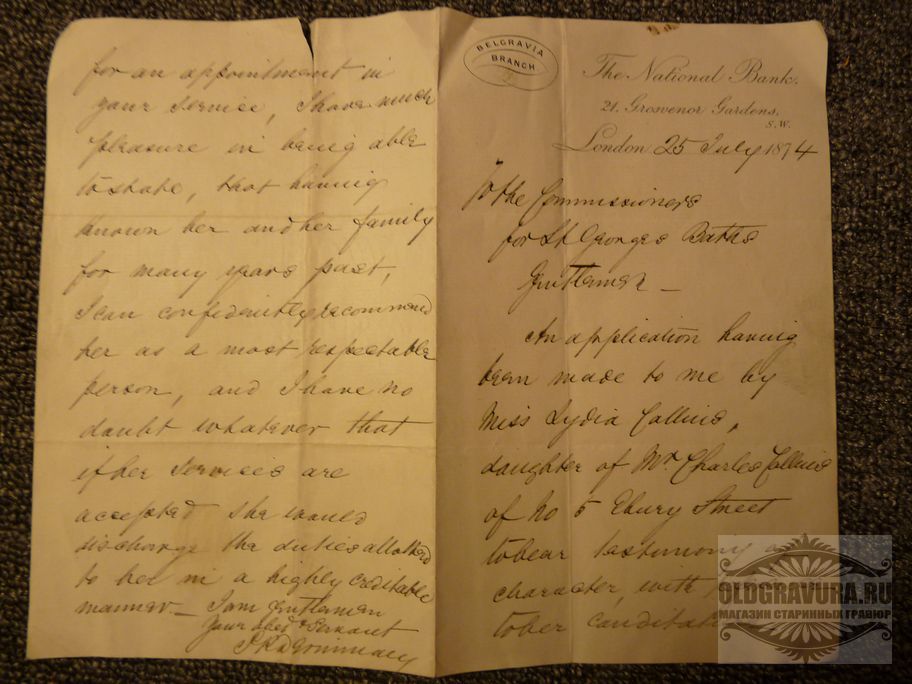 BELGRAVIA
BRANCH
The National Bank.
21, Grosvenor Gardens,
S.W.
London 25 July 1874
To the Commissioners
for St Georges Baths
Gentlemen —
An application having
been made to me by
Miss Lydia Collins,
daughter of Mr Charles Collins
of No 5 Ebury Street
to bear testimony
character, with
to her
for an appointment in
your service, I have much
pleasure in being able
to state, that having
known her and her family
for many years past,
I can confidently recommend
her as a most respectable
person, and I have no
doubt whatever that
if her services are
accepted she would
discharge the duties allotted
to her in a highly creditable
manner — I am Gentlemen
Your obedt Servant
OLDGRAVURA.RU
МАГАЗИН СТАРИННЫХ ГРАВЮР